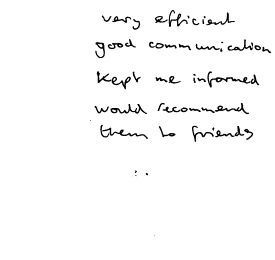 very efficient
good communication
kept me informed
would recommend
them to friends